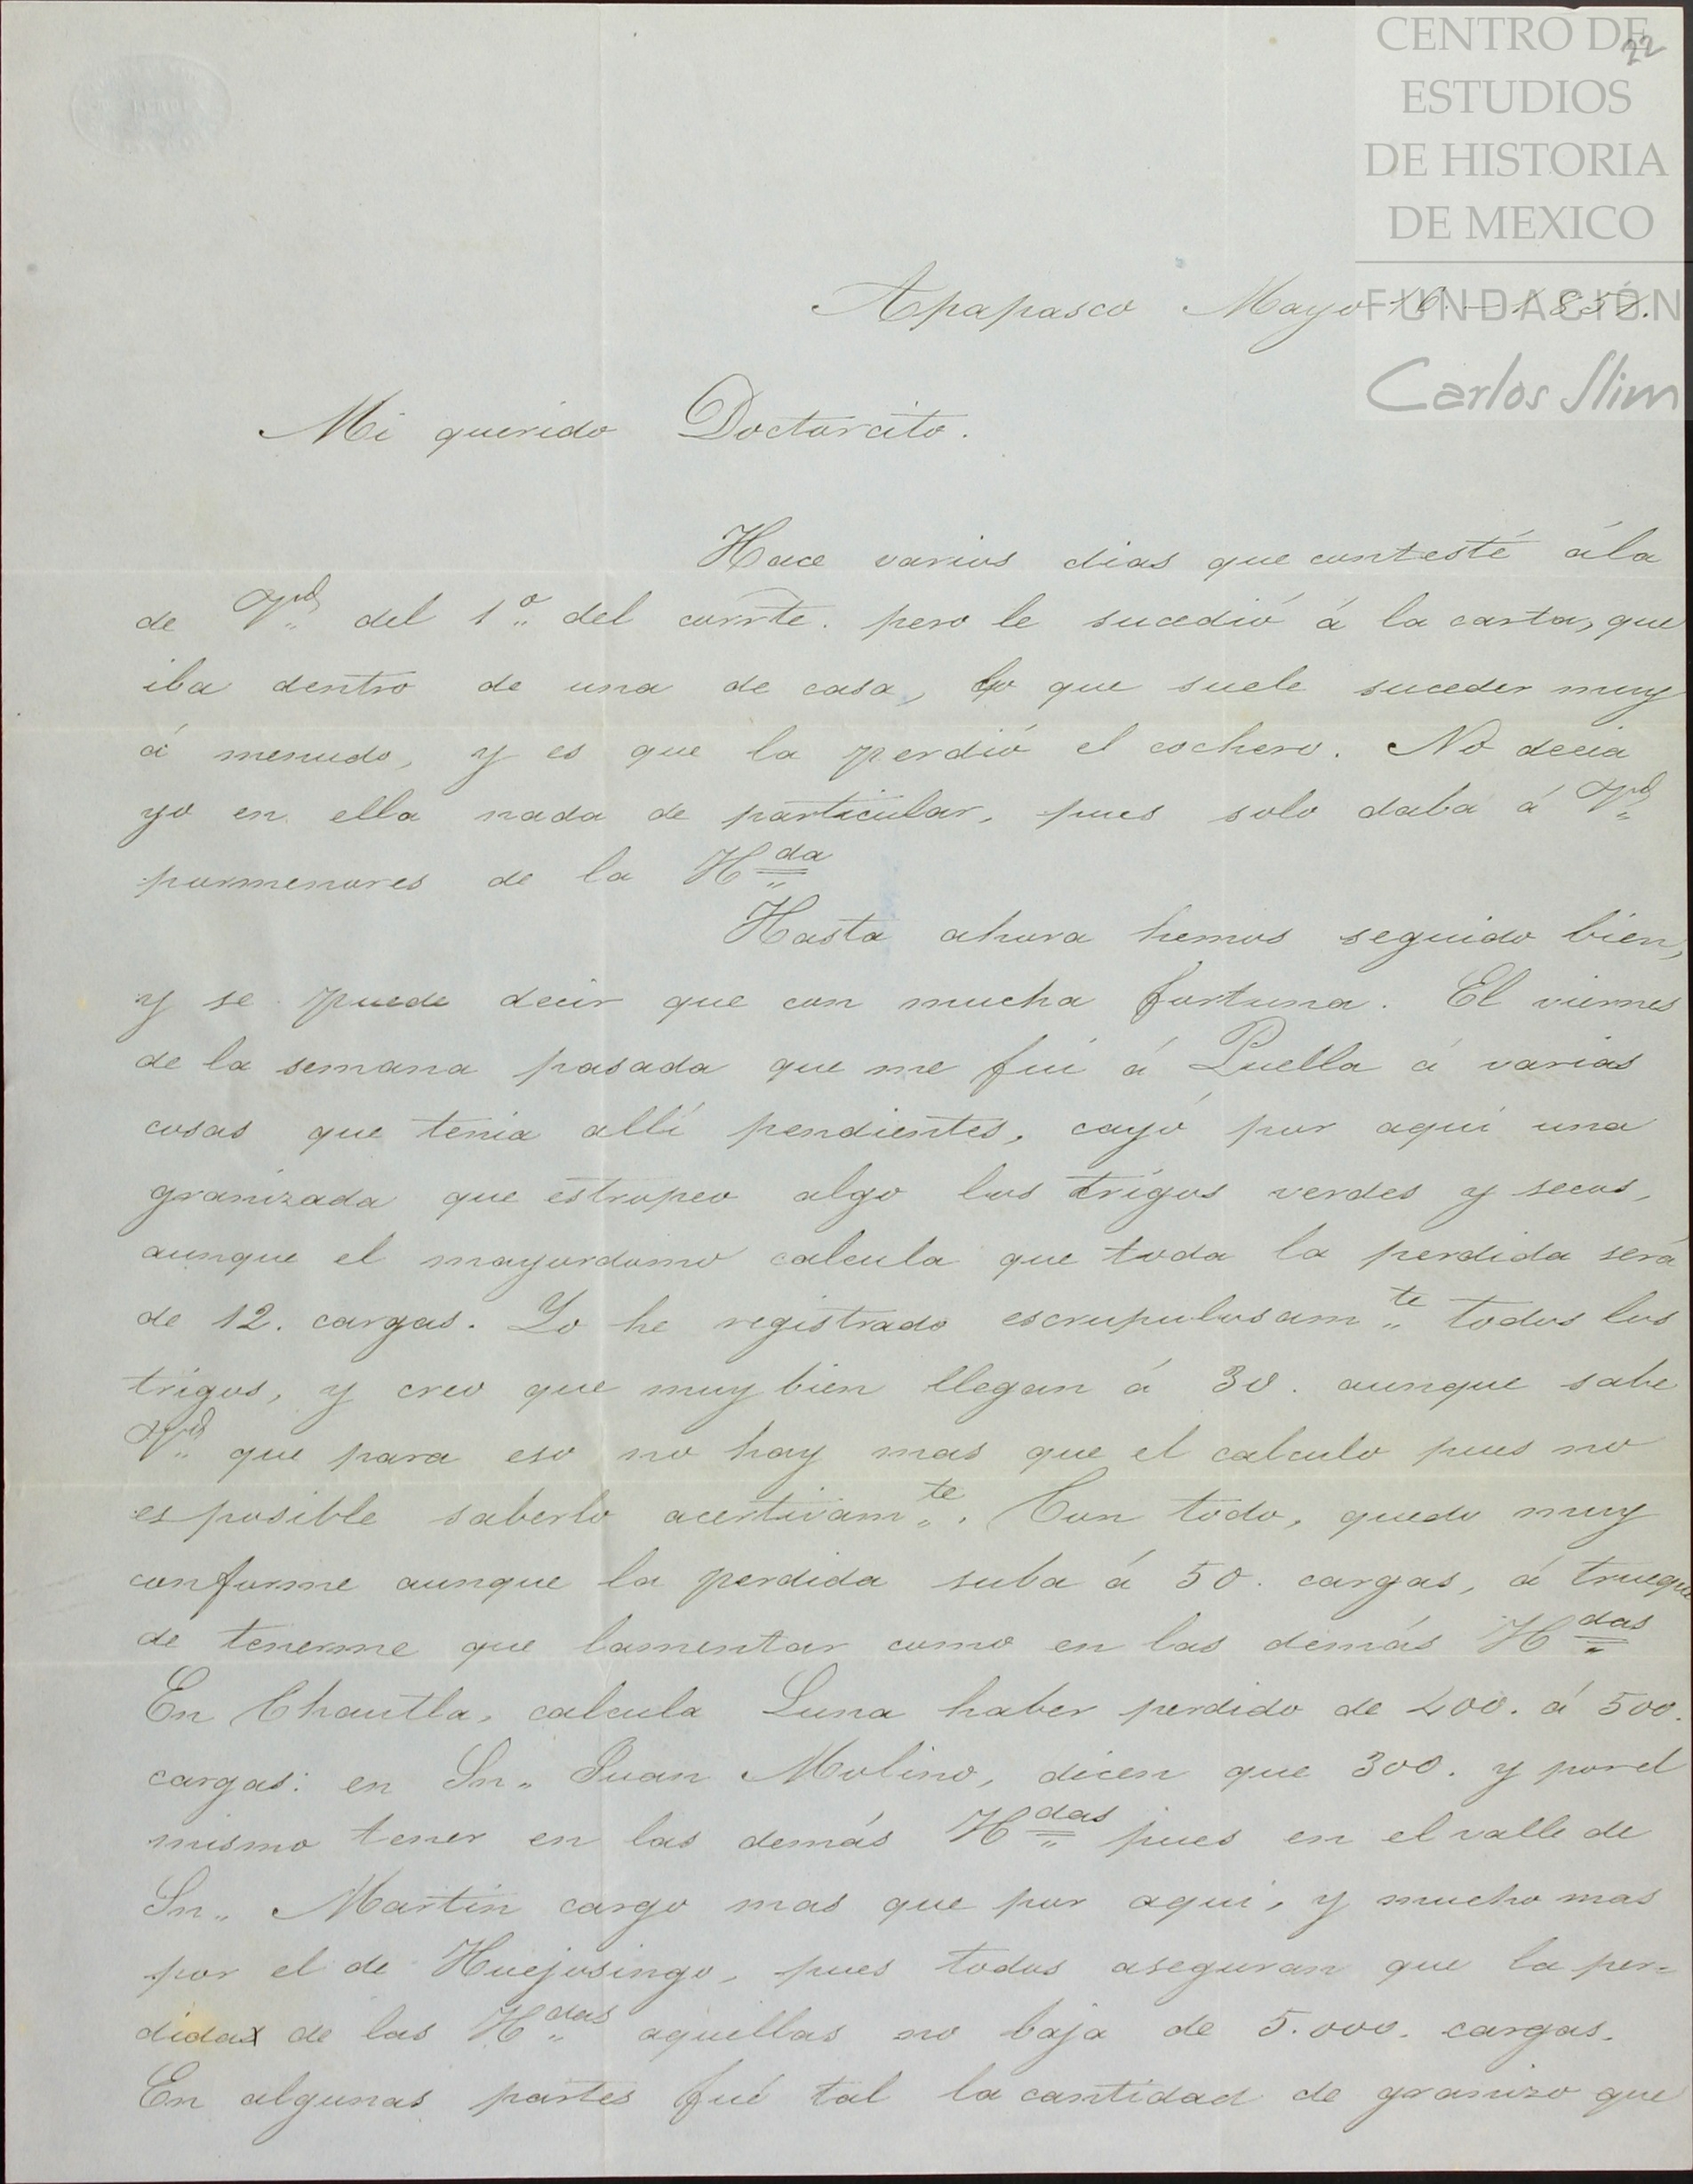 CENTRO DE
ESTUDIOS
DE HISTORIA
DE MEXICO
FUNDACIÓN
Carlos Slim
22
Apapasco Mayo 16.-1857.
Mi querido Doctorcito.
Hace varios dias que contesté á la
de Vd. del 1º del corrte. pero le sucedió á la carta, que
iba dentro de una de casa, lo que suele suceder muy
á menudo, y es que la perdió el cochero. No decia
yo en ella nada de particular, pues solo daba á Vd.
pormenores de la Hda
Hasta ahora hemos seguido bien,
y se puede decir que con mucha fortuna. El viernes
de la semana pasada que me fui á Puebla á varias
cosas que tenia allí pendientes, cayó por aqui una
granizada que estropeo algo los trigos verdes y secos,
aunque el mayordomo calcula que toda la perdida será
de 12. cargas. Yo he registrado escrupulosamte todos los
trigos, y creo que muy bien llegan á 30. aunque sabe
Vd. que para eso no hay mas que el calculo pues no
es posible saberlo acertivamte. Con todo, quedo muy
conforme aunque la perdida suba á 50. cargas, á trueque
de tenerme que lamentar como en las demás Hdas
En Chautla, calcula Luna haber perdido de 400. á 500.
cargas: en Sn. Juan Molino, dicen que 300. y por el
mismo tener en las demás Hdas pues en el valle de
Sn. Martin cargo mas que por aqui, y mucho mas
por el de Huejosingo, pues todos aseguran que la per-
dida de las Hdas aquellas no baja de 5.000. cargas.
En algunas partes fué tal la cantidad de granizo que